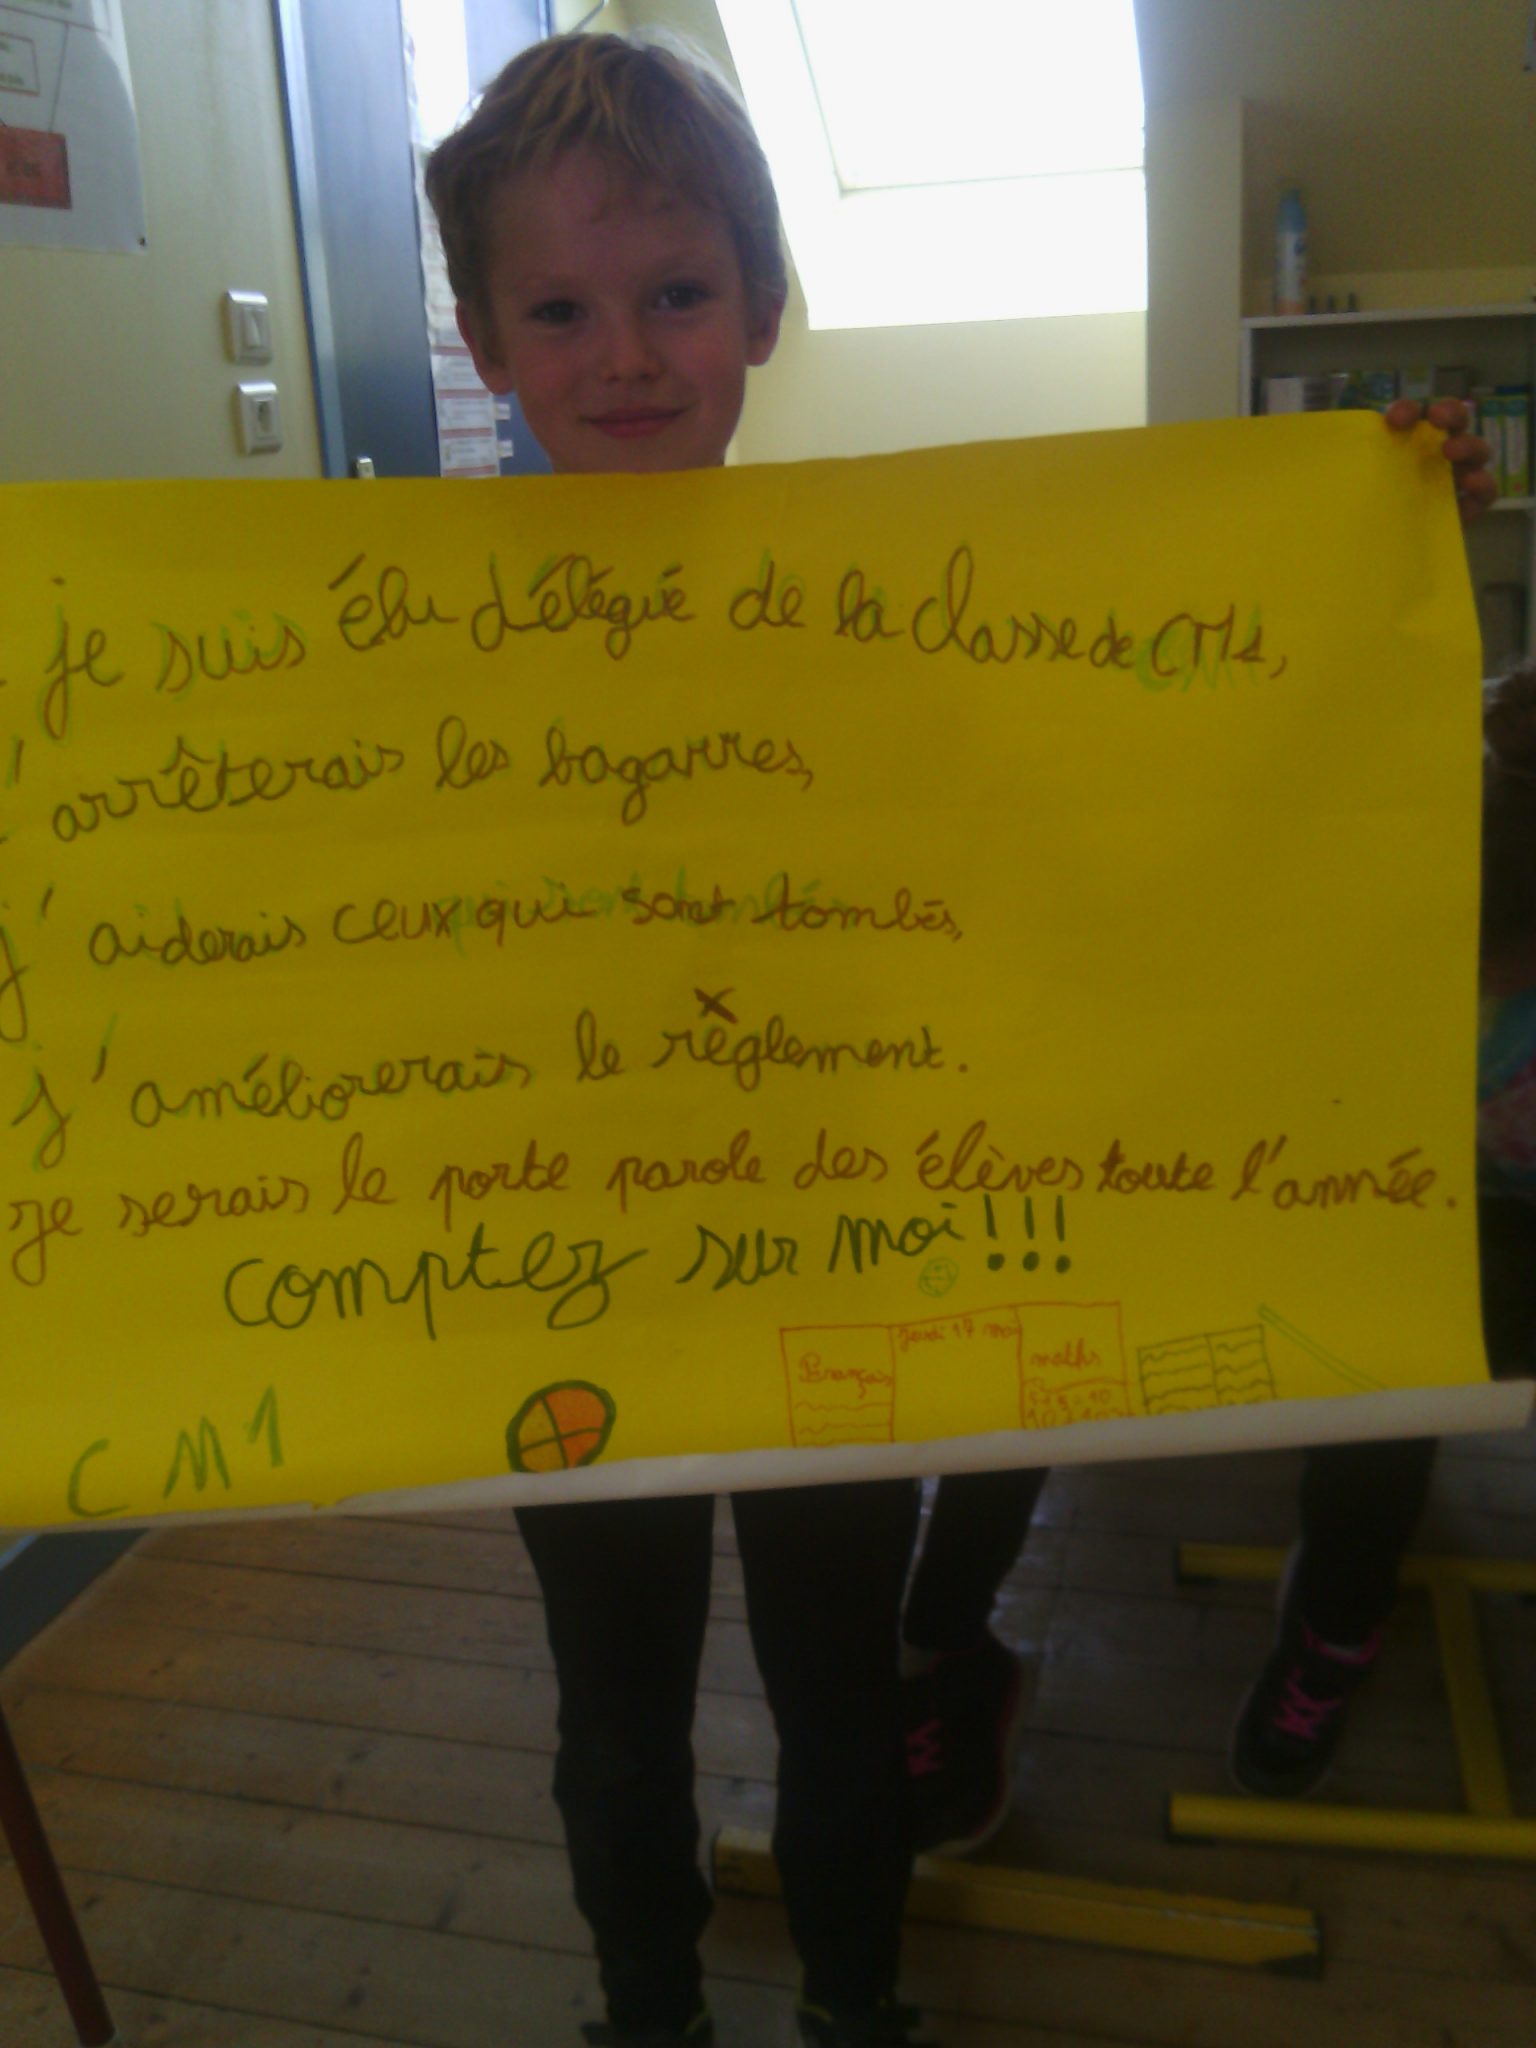 je suis élu délégué de la classe de CM1,
j'arrêterais les bagarres,
j'aiderais ceux qui sont tombés,
j'améliorerais le règlement.
je serais le porte parole des élèves toute l'année.
comptez sur moi!!!
Français
jeudi 17
maths
CM1